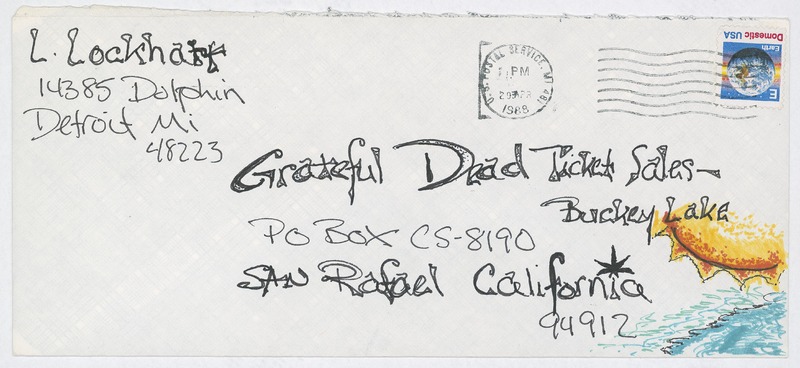 L. Lockhart
14385 Dolphin
Detroit Mi
48223
U.S. POSTAL SERVICE, MI 481
PM
29 APR
1988
Earth
Domestic USA
E
Grateful Dead Ticket Sales-
Buckey Lake
PO BOX CS-8190
SAN Rafael California
94912